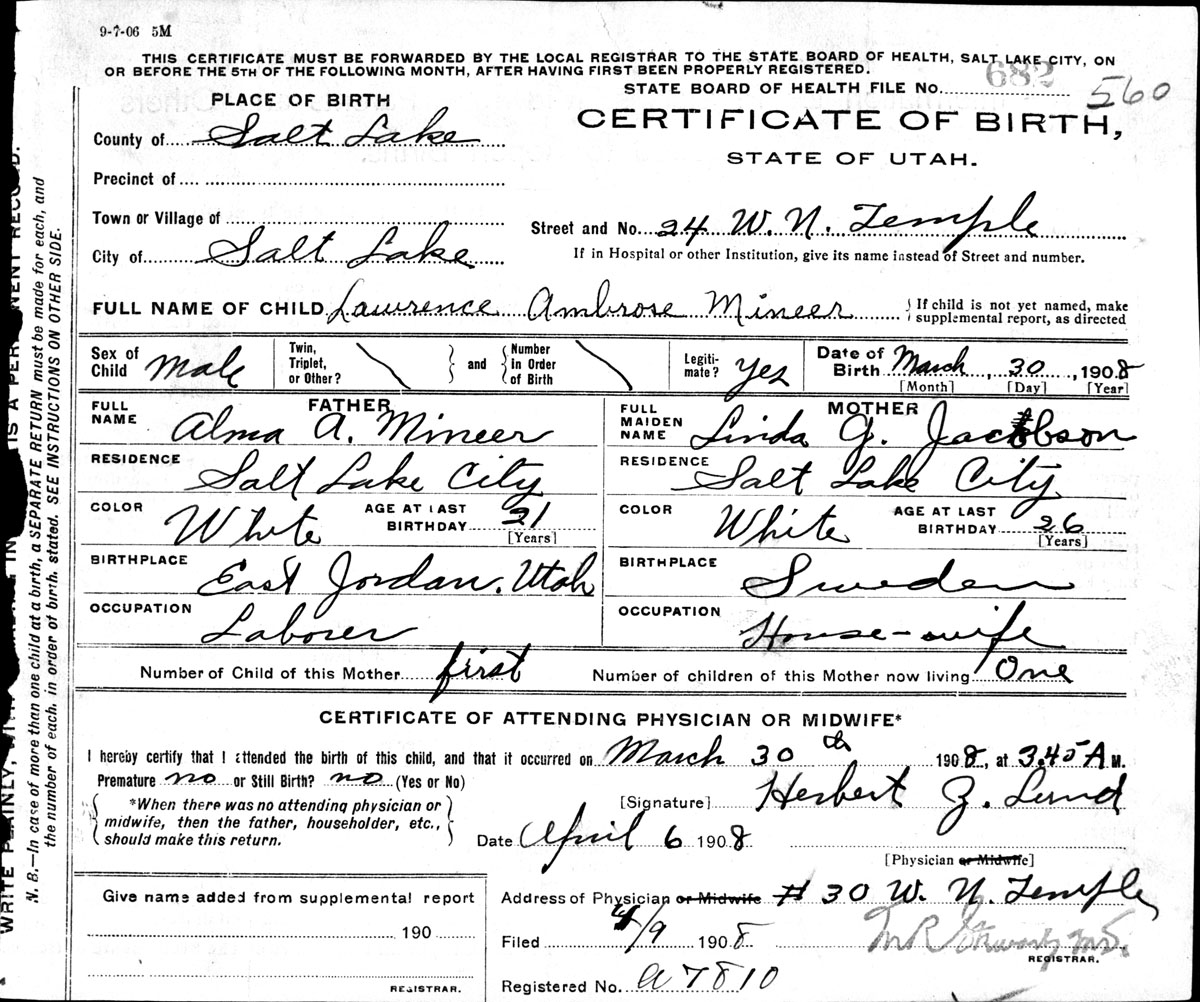 9-7-06 5M
THIS CERTIFICATE MUST BE FORWARDED BY THE LOCAL REGISTRAR TO THE STATE BOARD OF HEALTH, SALT LAKE CITY, ON
OR BEFORE THE 5TH OF THE FOLLOWING MONTH, AFTER HAVING FIRST BEEN PROPERLY REGISTERED.
STATE BOARD OF HEALTH FILE No. 682
560
PLACE OF BIRTH
CERTIFICATE OF BIRTH,
STATE OF UTAH.
County of Salt Lake
Precinct of
Town or Village of
Street and No. 24 W. N. Temple
City of Salt Lake
If in Hospital or other Institution, give its name instead of Street and number.
FULL NAME OF CHILD Lawrence Ambrose Mineer
{If child is not yet named, make
supplemental report, as directed
Sex of Child Male
Twin, Triplet, or Other? } and {Number in Order of Birth
Legiti-mate? Yes
Date of Birth March, 30, 1908
[Month] [Day] [Year]
FATHER
FULL NAME Alma A. Mineer
MOTHER
FULL MAIDEN NAME Linda G. Jacobson
RESIDENCE Salt Lake City
RESIDENCE Salt Lake City
COLOR White AGE AT LAST BIRTHDAY 21
[Years]
COLOR White AGE AT LAST BIRTHDAY 26
[Years]
BIRTHPLACE East Jordan, Utah
BIRTHPLACE Sweden
OCCUPATION Laborer
OCCUPATION House-wife
Number of Child of this Mother first Number of children of this Mother now living One
CERTIFICATE OF ATTENDING PHYSICIAN OR MIDWIFE*
I hereby certify that I attended the birth of this child, and that it occurred on March 30th 1908, at 3.45 A M.
Premature no or Still Birth? no (Yes or No)
{*When there was no attending physician or
midwife, then the father, householder, etc.,
should make this return.}
[Signature] Herbert Z. Lund
Date April 6 1908
[Physician or Midwife]
Give name added from supplemental report
190
REGISTRAR.
Address of Physician or Midwife # 30 W. N. Temple
Filed 4/9 1908
REGISTRAR.
Registered No. a7810
N. B.—In case of more than one child at a birth, a SEPARATE RETURN must be made for each, and
the number of each, in order of birth, stated. SEE INSTRUCTIONS ON OTHER SIDE.
WRITE PLAINLY, IS A PERMANENT RECORD.